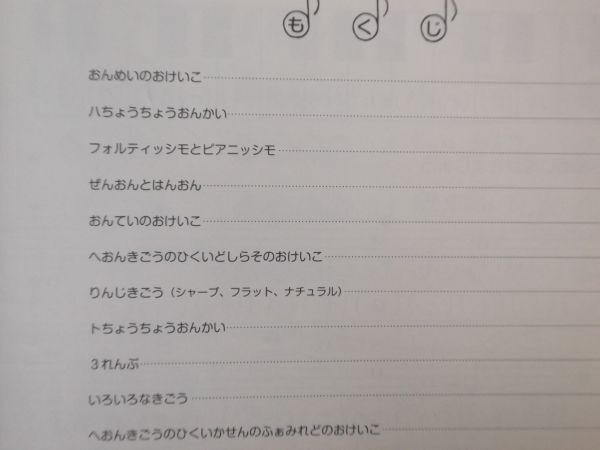 もくじ
おんめいのおけいこ
ハちょうちょうおんかい
フォルティッシモとピアニッシモ
ぜんおんとはんおん
おんていのおけいこ
へおんきごうのひくいどしらそのおけいこ
りんじきごう（シャープ、フラット、ナチュラル）
トちょうちょうおんかい
３れんぷ
いろいろなきごう
へおんきごうのひくいかせんのふぁみれどのおけいこ